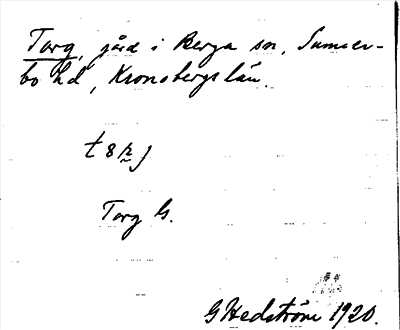 Torg, gård i Berga sn, Sunner-
bo hd, Kronobergs län.
Torg G.
G Hedström 1920.